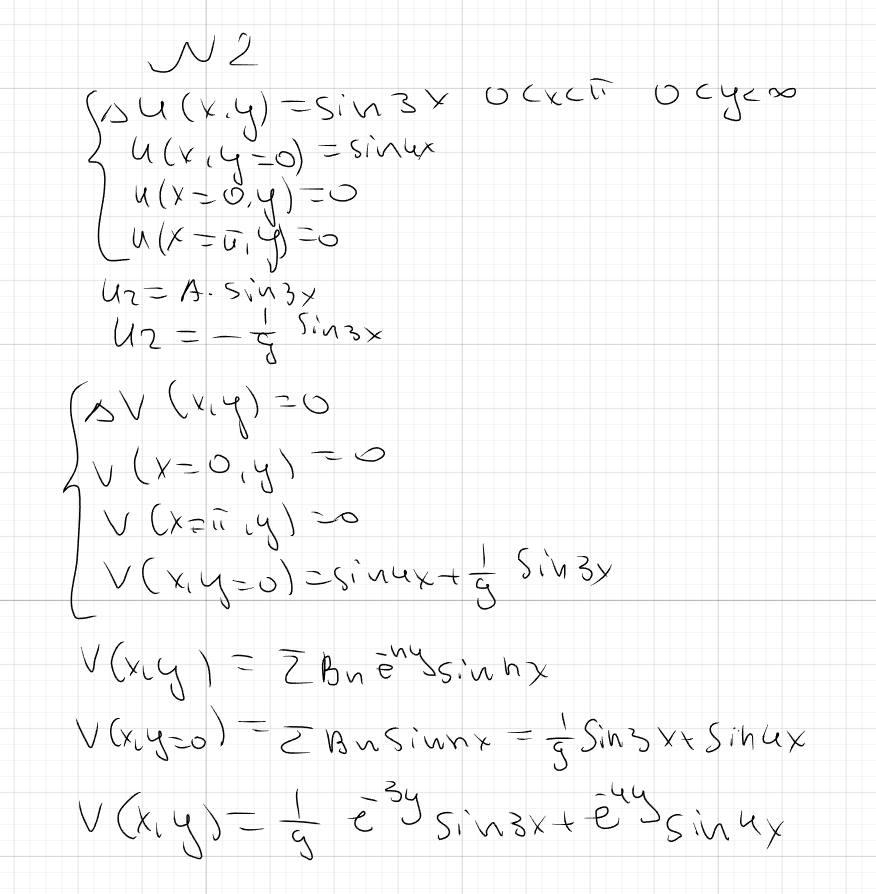 N2
Δu(x,y) = sin3x 0<x<π 0<y<∞
u(x,y=0) = sin4x
u(x=0,y)=0
u(x=π,y)=0
u₂ = A·sin3x
u₂ = -1/9 sin3x
ΔV(x,y)=0
V(x=0,y)=0
V(x=π,y)=0
V(x,y=0)=sin4x+1/9 sin3x
V(x,y) = ΣBn e^{-ny} sin nx
V(x,y=0) = ΣBn sin nx = 1/9 sin3x + sin4x
V(x,y) = 1/9 e^{-3y} sin3x + e^{-4y} sin4x